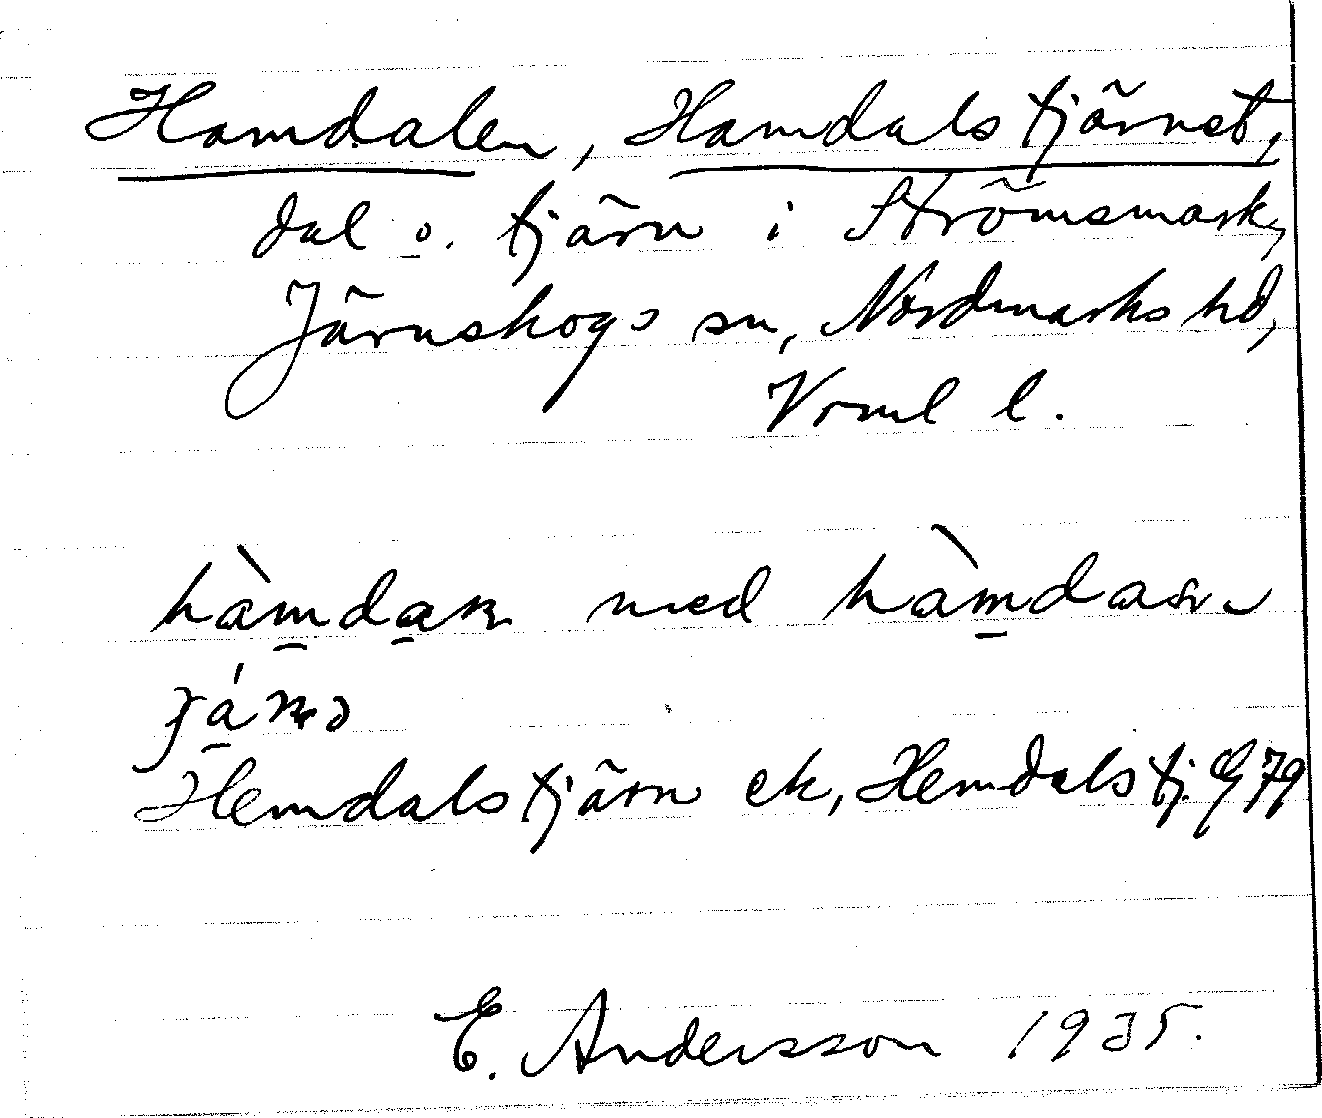 Hamdalen, Hamdalstjärnet,
dal o. tjärn i Strömsmark,
Järnskogs sn, Nordmarks hd,
Vrml l.
med
Hemdalstjärn ek, Hemdalstj. G 79
E. Andersson 1935.